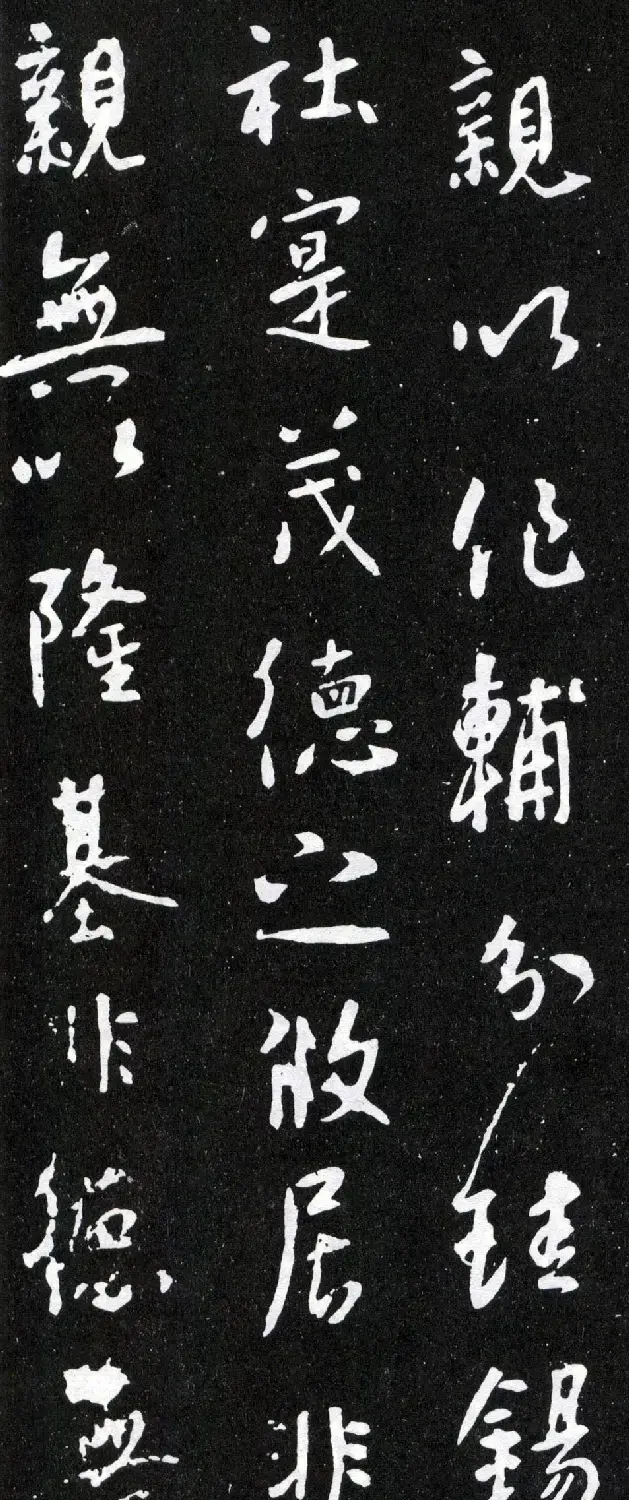 親以作輔分珪錫
社寔茂德之攸居非
親無以隆基非德無